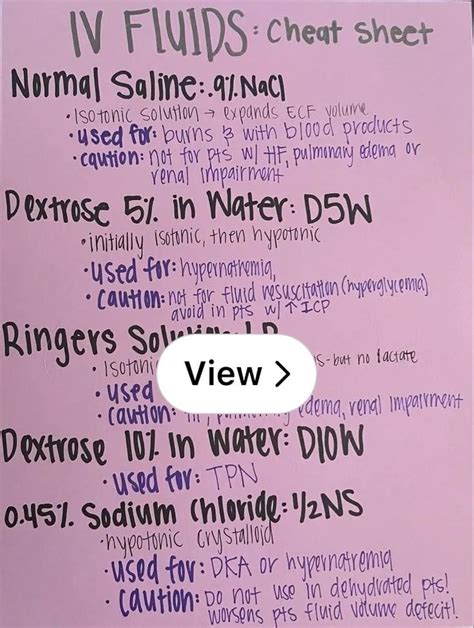 IV FLUIDS: Cheat Sheet
Normal Saline: .9% NaCl
• Isotonic solution → expands ECF volume
• used for: burns & with blood products
• caution: not for pts w/ HF, pulmonary edema or
renal impairment
Dextrose 5% in Water: D5W
• initially isotonic, then hypotonic
• used for: hypernatremia,
• caution: not for fluid resuscitation (hyperglycemia)
avoid in pts w/ ↑ ICP
Ringers
• Isotoni -but no lactate
• used
View >
• caution: edema, renal impairment
Dextrose 10% in Water: D10W
• used for: TPN
0.45% Sodium Chloride: 1/2NS
• hypotonic crystalloid
• used for: DKA or hypernatremia
• caution: Do not use in dehydrated pts!
worsens pts fluid volume defecit!